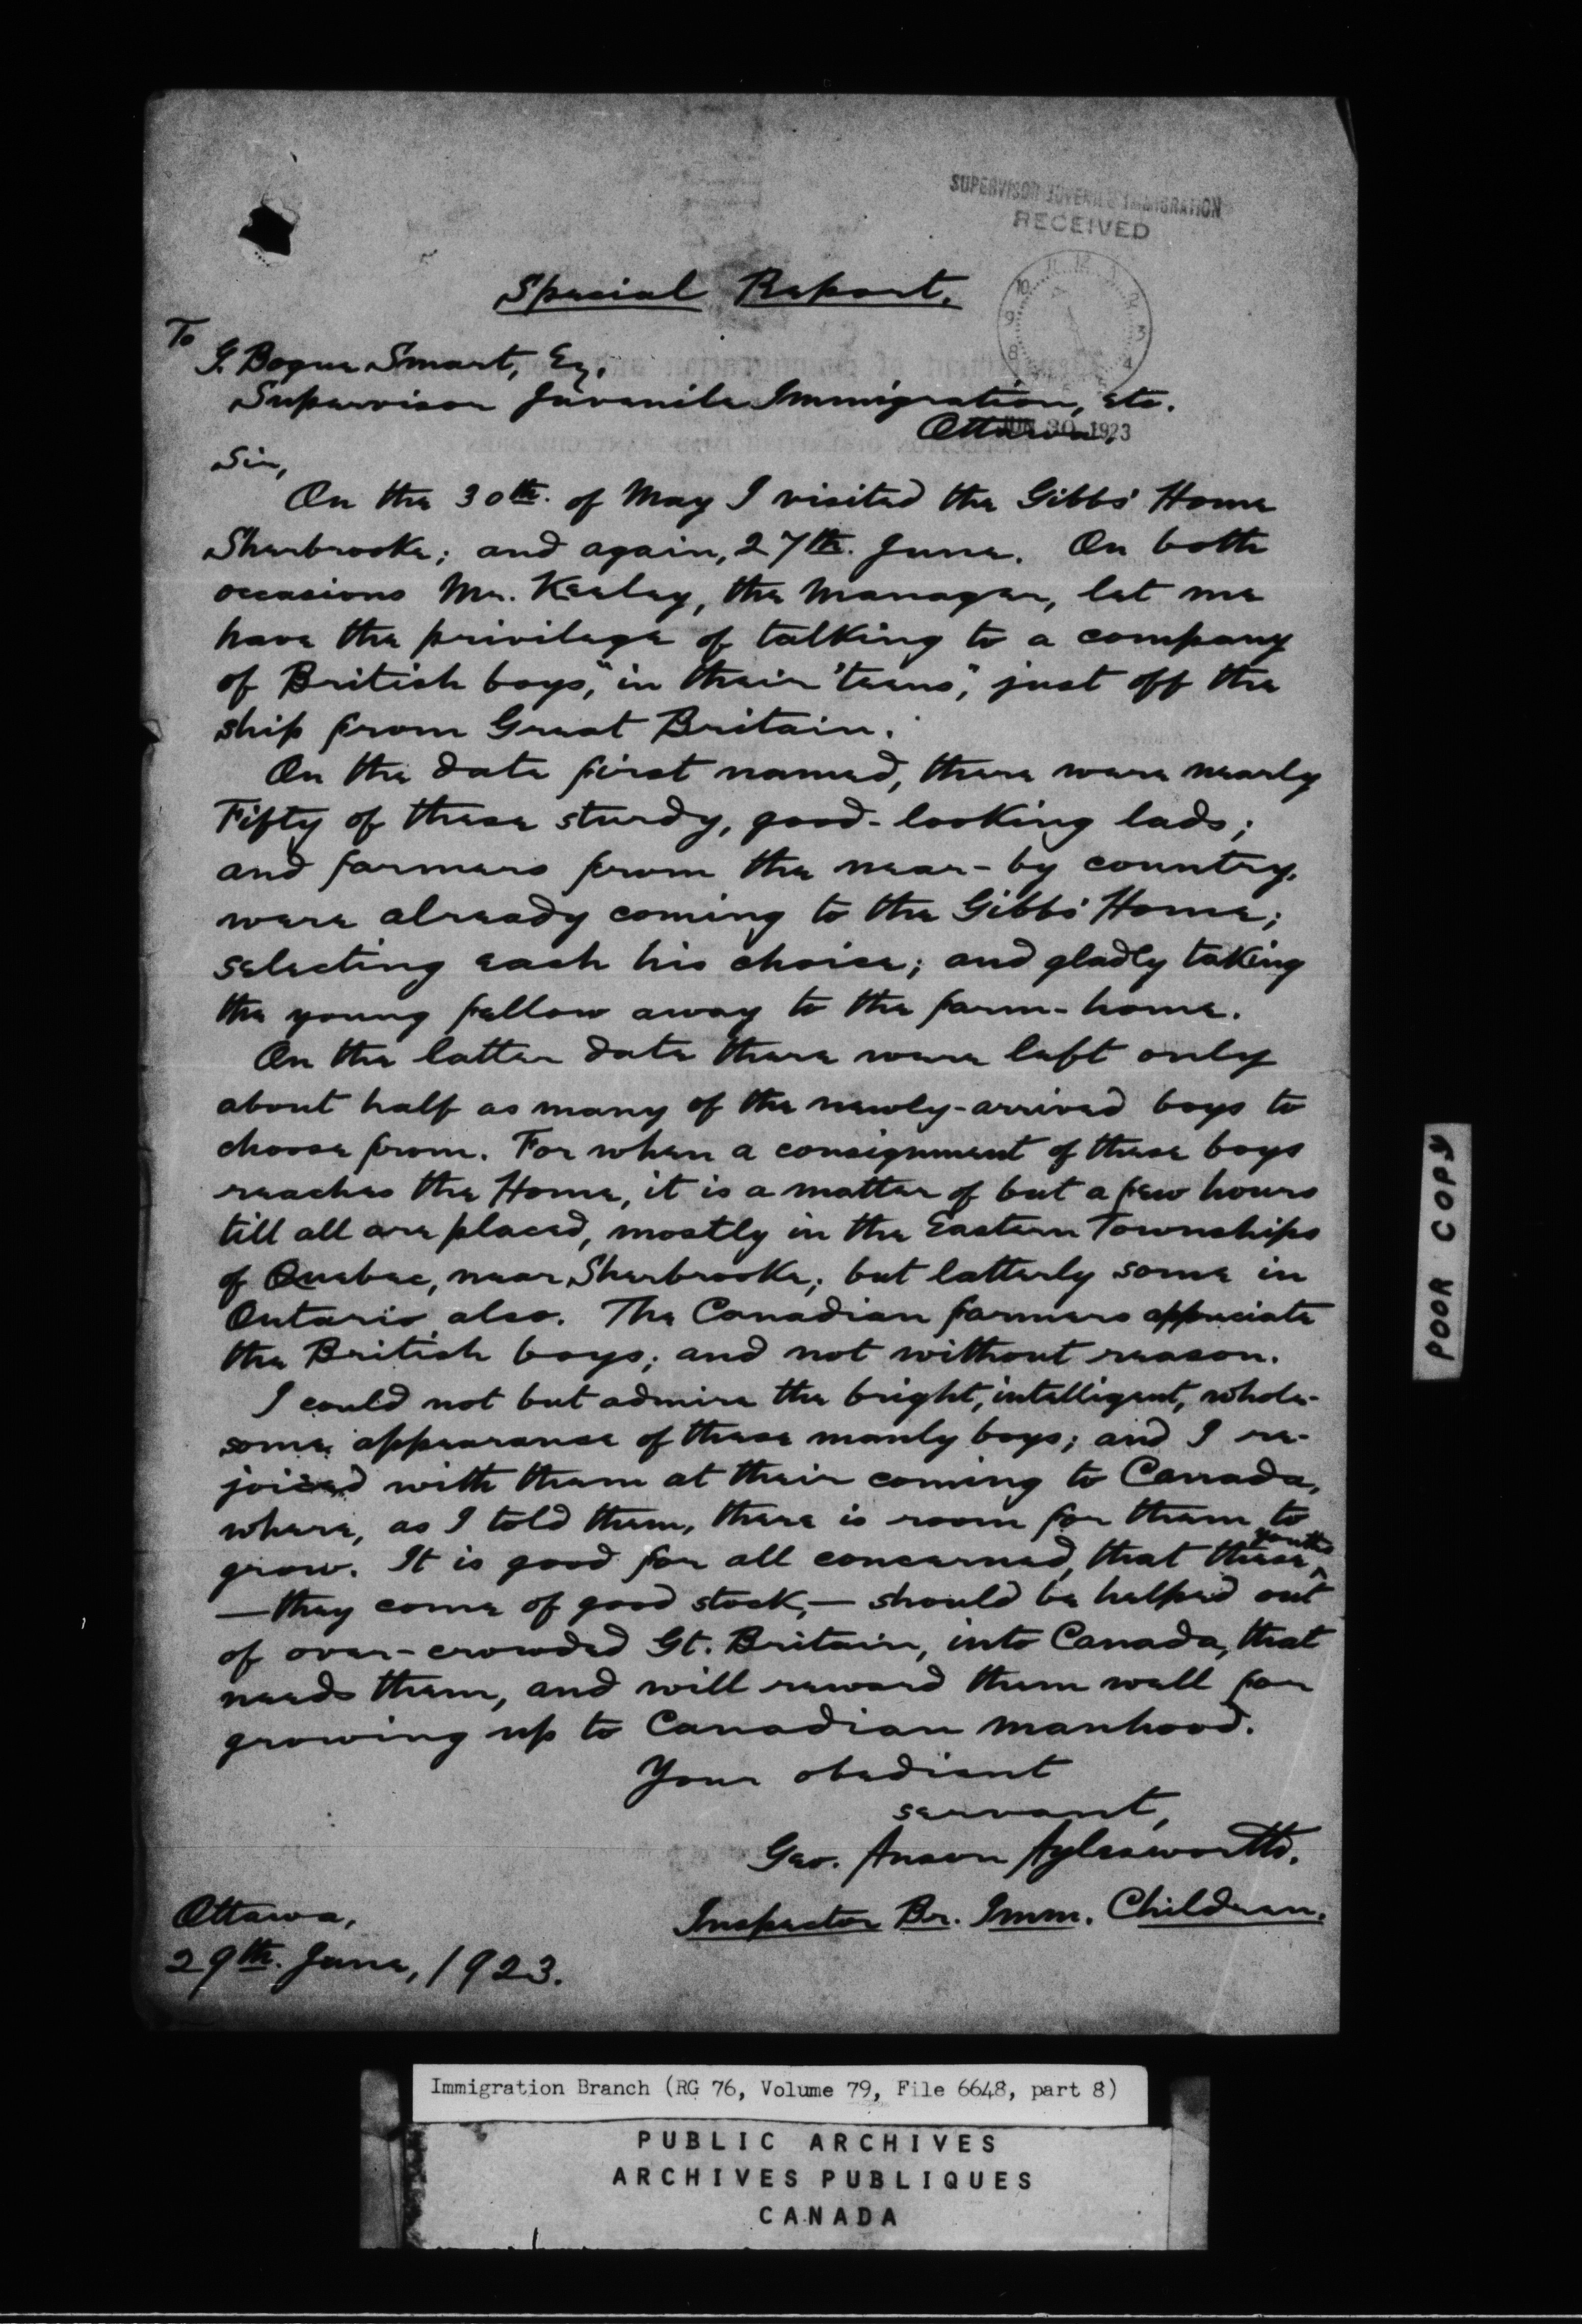 SUPERVISOR JUVENILE IMMIGRATION
RECEIVED
Special Report.
To
G. Bogue Smart, Esq.
Supervisor Juvenile Immigration, etc.
Ottawa,
JUN 30 1923
Sir,
On the 30th. of May I visited the Gibbs' Home
Sherbrooke; and again, 27th. June. On both
occasions Mr. Kealey, the Manager, let me
have the privilege of talking to a company
of British boys, "in their 'teens", just off the
ship from Great Britain.
On the date first named, there were nearly
Fifty of these sturdy, good-looking lads;
and farmers from the near-by country,
were already coming to the Gibbs' Home;
selecting each his choice; and gladly taking
the young fellow away to the farm-home.
On the latter date there were left only
about half as many of the newly-arrived boys to
choose from. For when a consignment of these boys
reaches the Home, it is a matter of but a few hours
till all are placed, mostly in the Eastern Townships
of Quebec, near Sherbrooke; but latterly some in
Ontario also. The Canadian farmers appreciate
the British boys; and not without reason.
I could not but admire the bright, intelligent, whole-
some appearance of these manly boys; and I re-
joiced with them at their coming to Canada,
where, as I told them, there is room for them to
grow. It is good for all concerned, that these youths
— they come of good stock, — should be helped out
of over-crowded Gt. Britain, into Canada, that
needs them, and will reward them well for
growing up to Canadian manhood.
Your obedient
servant,
Geo. Anson Aylesworth.
Inspector Br. Imm. Children.
Ottawa,
29th. June, 1923.
POOR COPY
Immigration Branch (RG 76, Volume 79, File 6648, part 8)
PUBLIC ARCHIVES
ARCHIVES PUBLIQUES
CANADA